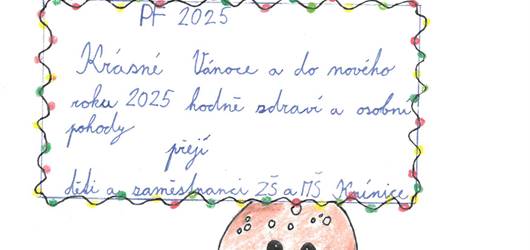 PF 2025
Krásné Vánoce a do nového
roku 2025 hodně zdraví a osobní
pohody
přejí
děti a zaměstnanci ZŠ a MŠ Křínice